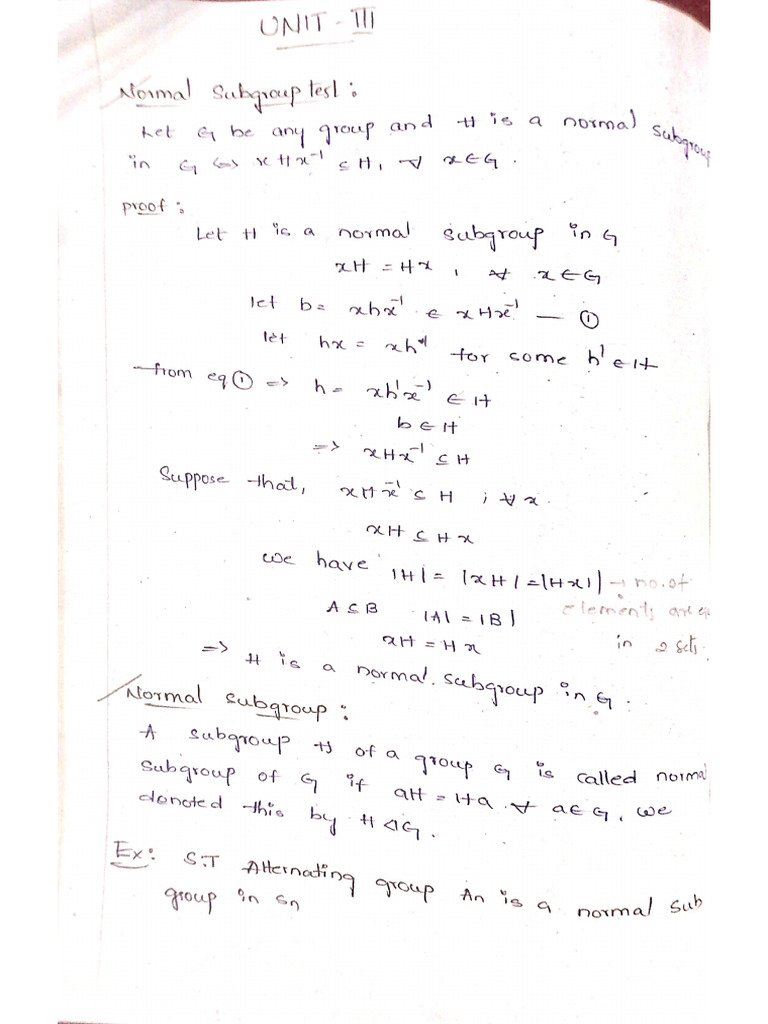 UNIT - III
Normal Subgroup test :
Let G be any group and H is a normal Subgroup
in G ⇔ xHx⁻¹ ⊆ H, ∀ x∈G.
proof :
Let H is a normal subgroup in G
xH = Hx , ∀ x∈G
let b = xhx⁻¹ ∈ xHx⁻¹ — ①
let hx = xh' for some h' ∈ H
from eq ① => h = xh'x⁻¹ ∈ H
b ∈ H
=> xHx⁻¹ ⊆ H
Suppose that, xHx⁻¹ ⊆ H ; ∀ x.
xH ⊆ Hx
we have |H| = |xH| = |Hx| → no. of
A ⊆ B |A| = |B| elements are
xH = Hx in 2 sets.
=> H is a normal subgroup in G.
Normal Subgroup :
A subgroup H of a group G is called norma
subgroup of G if aH = Ha ∀ a∈G, we
denoted this by H ⊲ G.
Ex: S.T Alternating group An is a normal sub
group in Sn